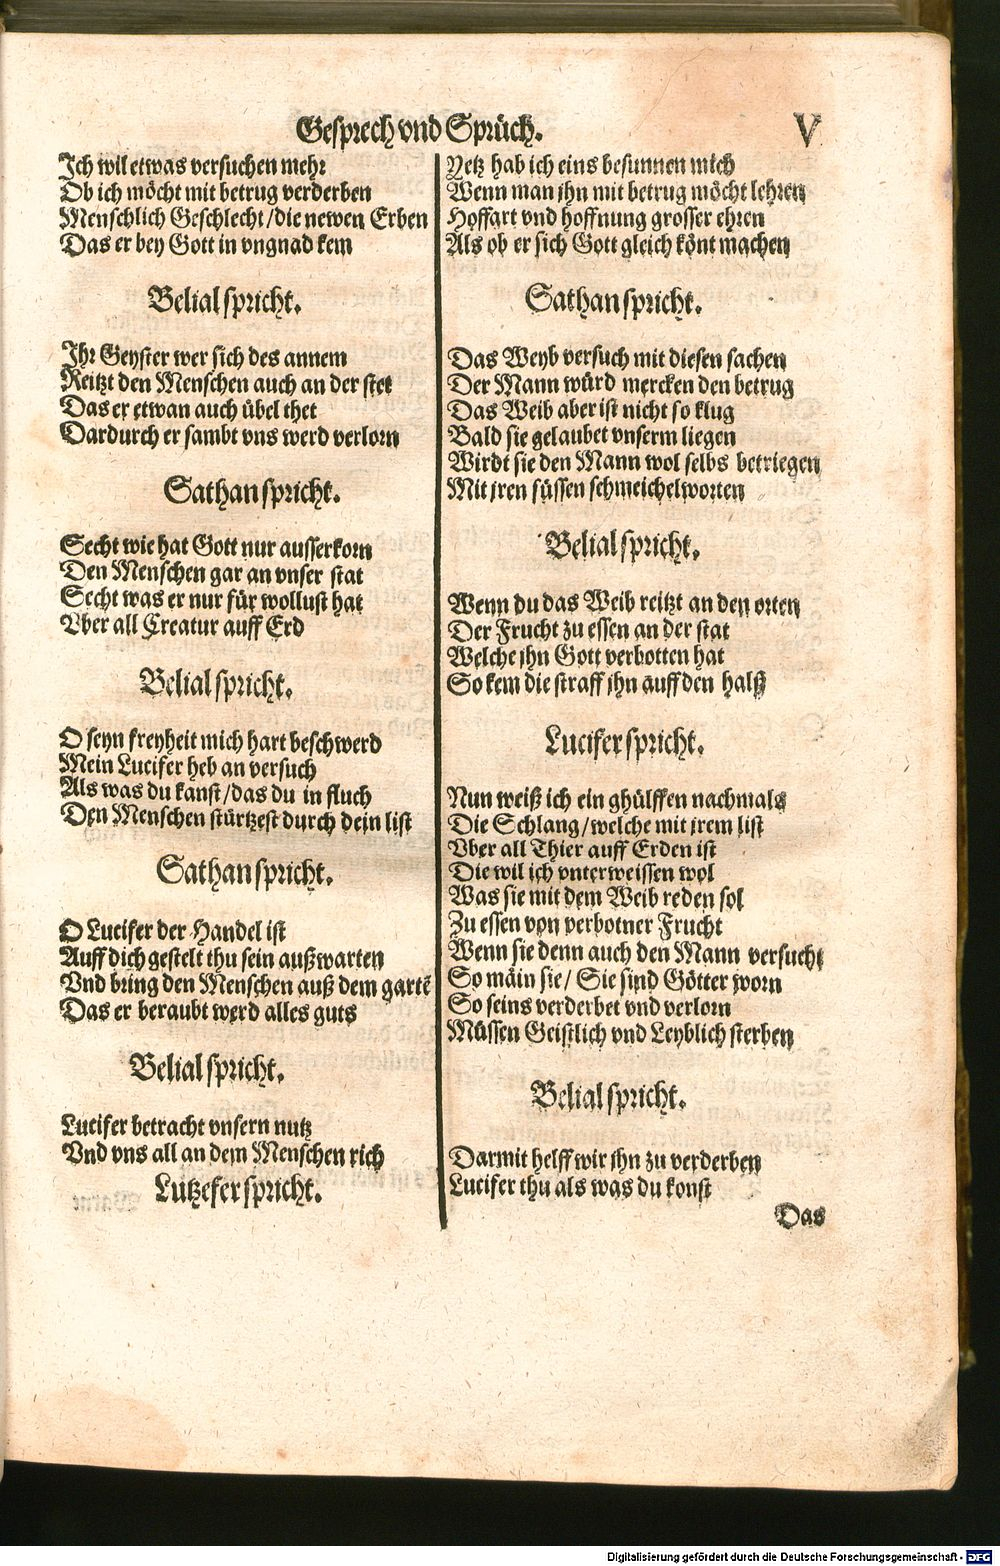 Gesprech vnd Sprüch. V
Ich wil etwas versuchen mehr
Ob ich möcht mit betrug verderben
Menschlich Geschlecht / die newen Erben
Das er bey Gott in vngnad kem
Belial spricht.
Ihr Geyster wer sich des annem
Reitzt den Menschen auch an der stet
Das er etwan auch übel thet
Dardurch er sambt vns werd verlorn
Sathan spricht.
Secht wie hat Gott nur ausserkorn
Den Menschen gar an vnser stat
Secht was er nur für wollust hat
Vber all Creatur auff Erd
Belial spricht.
O seyn freyheit mich hart beschwerd
Mein Lucifer heb an versuch
Als was du kanst / das du in fluch
Den Menschen stürtzest durch dein list
Sathan spricht.
O Lucifer der Handel ist
Auff dich gestelt thu sein außwarten
Vnd bring den Menschen auß dem gartē
Das er beraubt werd alles guts
Belial spricht.
Lucifer betracht vnsern nutz
Vnd vns all an dem Menschen rich
Lutzefer spricht.
Yetz hab ich eins besunnen mich
Wenn man ihn mit betrug möcht lehren
Hoffart vnd hoffnung grosser ehren
Als ob er sich Gott gleich könt machen
Sathan spricht.
Das Weyb versuch mit diesen sachen
Der Mann würd mercken den betrug
Das Weib aber ist nicht so klug
Bald sie gelaubet vnserm liegen
Wirdt sie den Mann wol selbs betriegen
Mit jren süssen schmeichelworten
Belial spricht.
Wenn du das Weib reitzt an den orten
Der Frucht zu essen an der stat
Welche ihn Gott verbotten hat
So kem die straff ihn auff den halß
Lucifer spricht.
Nun weiß ich ein ghülffen nachmals
Die Schlang / welche mit jrem list
Vber all Thier auff Erden ist
Die wil ich vnterweissen wol
Was sie mit dem Weib reden sol
Zu essen von verbotner Frucht
Wenn sie denn auch den Mann versucht
So mäin sie / Sie sind Götter worn
So seins verderbet vnd verlorn
Müssen Geistlich vnd Leyblich sterben
Belial spricht.
Darmit helff wir ihn zu verderben
Lucifer thu als was du konst
Das
Digitalisierung gefördert durch die Deutsche Forschungsgemeinschaft - DFG